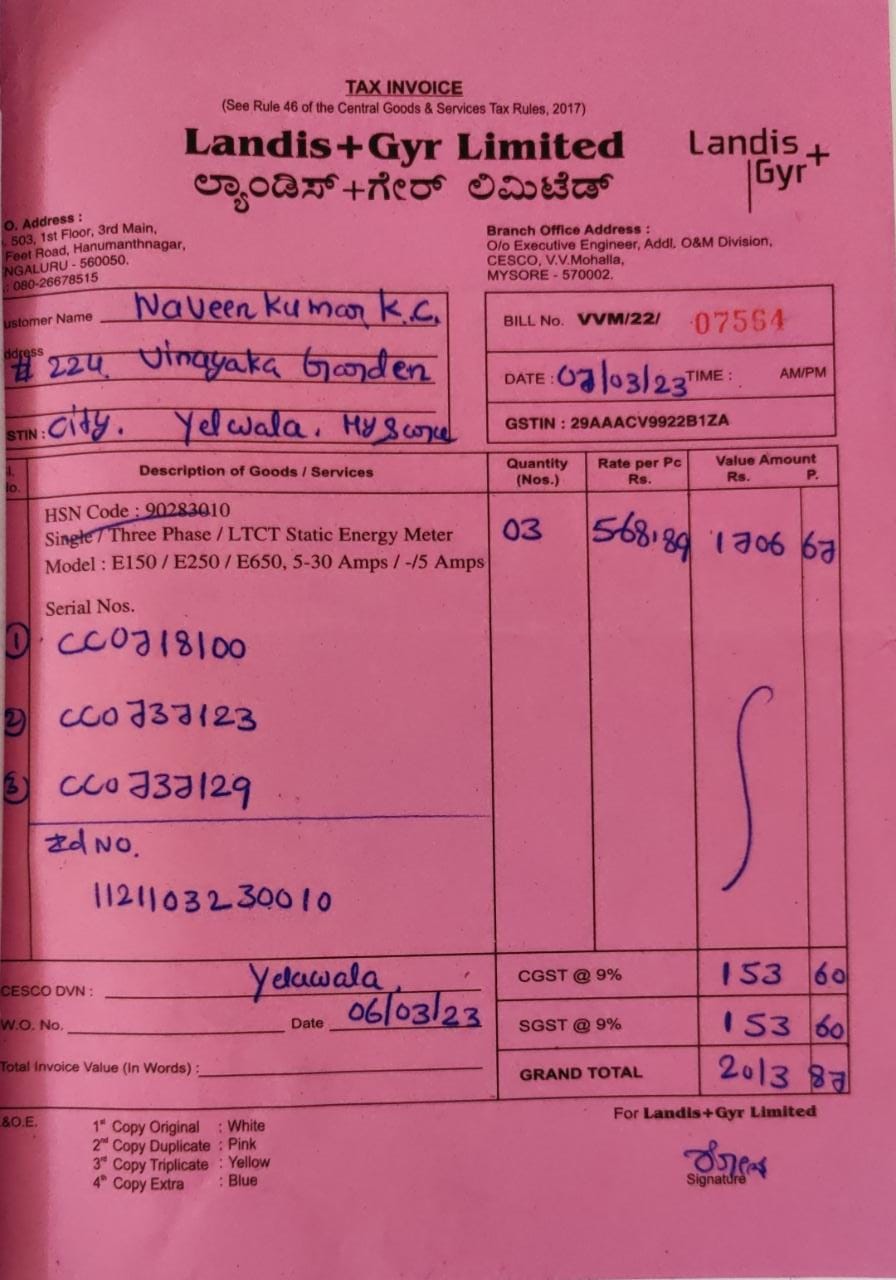 TAX INVOICE
(See Rule 46 of the Central Goods & Services Tax Rules, 2017)
Landis+Gyr Limited
ಲ್ಯಾಂಡಿಸ್+ಗೇರ್ ಲಿಮಿಟೆಡ್
Landis+
Gyr
O. Address :
503, 1st Floor, 3rd Main,
Feet Road, Hanumanthnagar,
NGALURU - 560050.
: 080-26678515
Branch Office Address :
O/o Executive Engineer, Addl. O&M Division,
CESCO, V.V.Mohalla,
MYSORE - 570002.
ustomer Name Naveen Kumar K.C.
ddress # 224. Vinayaka Garden
STIN : City. Yelwala. Mysore
BILL No. VVM/22/ 07564
DATE : 07/03/23 TIME : AM/PM
GSTIN : 29AAACV9922B1ZA
l. No. Description of Goods / Services Quantity (Nos.) Rate per Pc Rs. Value Amount Rs. P.
HSN Code : 90283010
Single / Three Phase / LTCT Static Energy Meter 03 568.89 1706 67
Model : E150 / E250 / E650, 5-30 Amps / -/5 Amps
Serial Nos.
1 CC0718100
2 CC0737123
3 CC0737129
Id NO.
1121103230010
CESCO DVN : Yelawala, CGST @ 9% 153 60
W.O. No. Date 06/03/23 SGST @ 9% 153 60
Total Invoice Value (In Words) : GRAND TOTAL 2013 87
&O.E.
For Landis+Gyr Limited
1st Copy Original : White
2nd Copy Duplicate : Pink
3rd Copy Triplicate : Yellow
4th Copy Extra : Blue
Signature